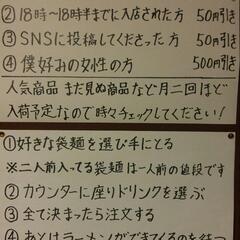 ② 18時〜18時半までに入店された方 50円引き
③ SNSに投稿してくださった方 50円引き
④ 僕好みの女性の方 500円引き
人気商品 まだ見ぬ商品など月二回ほど
入荷予定なので時々チェックしてください!
①好きな袋麺を選び手にとる
※二人前入ってる袋麺は一人前の値段です
②カウンターに座りドリンクを選ぶ
③全て決まったら注文する
④あとはラーメンができてくるのを待つ